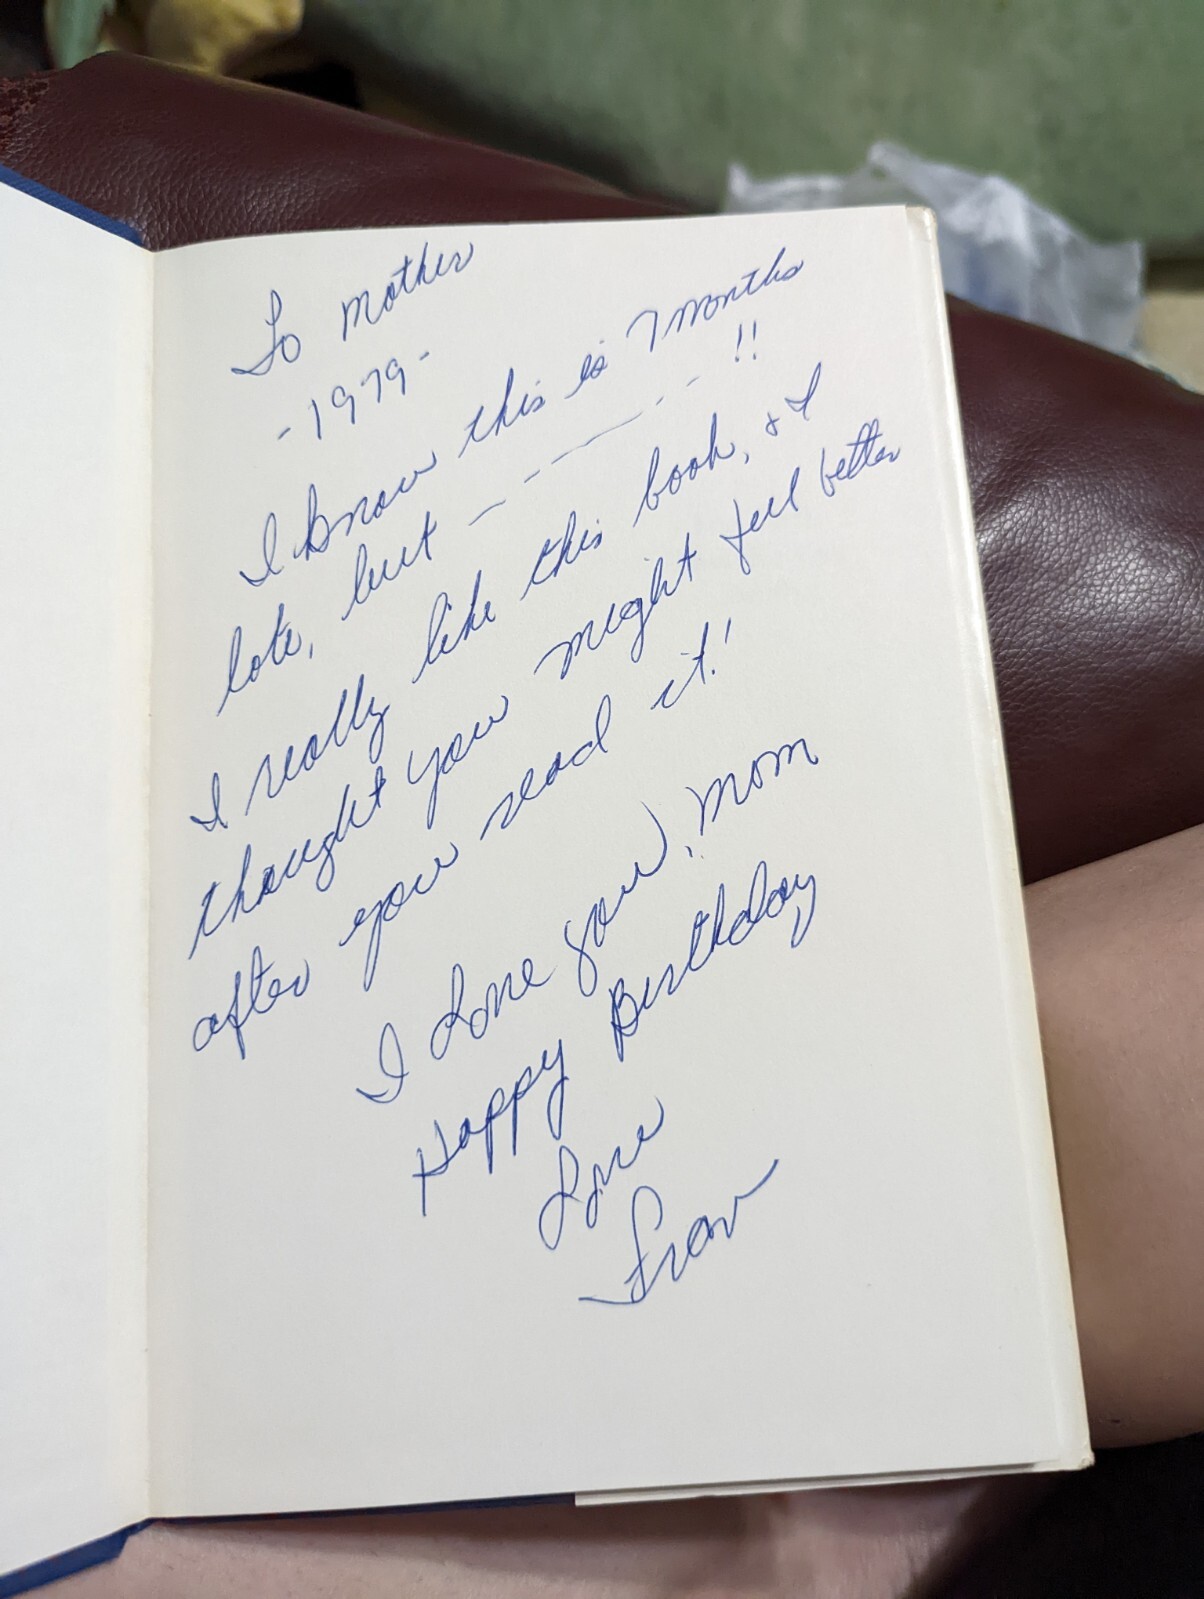 To Mother
-1979-
I know this is 7 months
late, but — - — — - - !!
I really like this book, & I
thought you might feel better
after you read it!
I Love you, Mom
Happy Birthday
Love
Fran